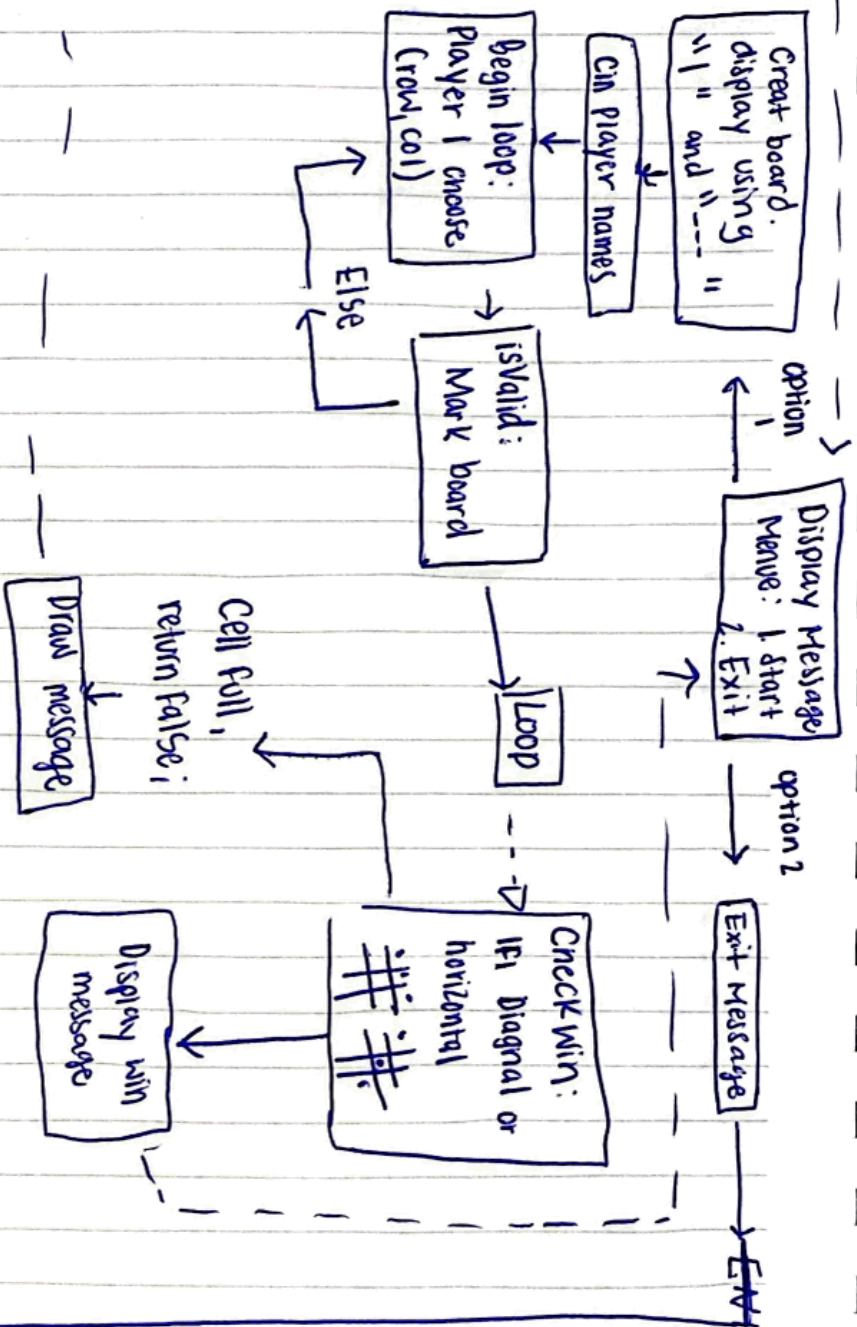 Display Message
Menue: 1. Start
2. Exit
option 1
option 2
Exit Message
Creat board.
display using
"|" and "---"
Cin player names
Begin loop:
Player 1 choose
(row, col)
isValid:
Mark board
Else
Loop
Check win:
IF, Diagnal or
horizontal
Cell full,
return false;
Draw message
Display win
message